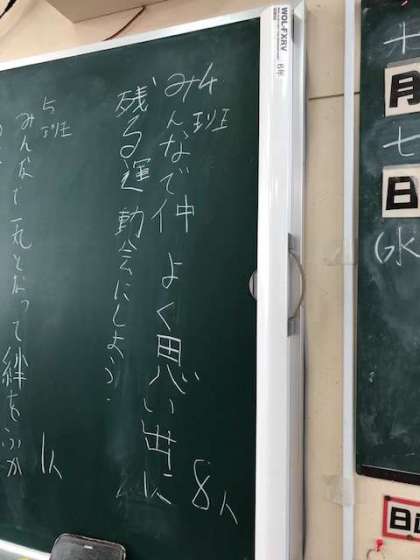 WOL-FXRV
6年
十月七日(水
日直
4班
みんなで仲よく思い出に
残る運動会にしよう。
8人
5班
みんなで一丸となって絆をふか
1人